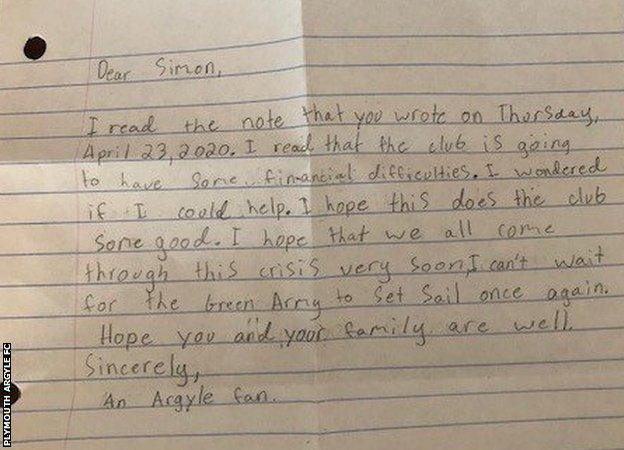 Dear Simon,
I read the note that you wrote on Thursday,
April 23, 2020. I read that the club is going
to have some financial difficulties. I wondered
if I could help. I hope this does the club
some good. I hope that we all come
through this crisis very soon, I can't wait
for the Green Army to Set Sail once again.
Hope you and your family are well.
Sincerely,
An Argyle fan.
PLYMOUTH ARGYLE FC